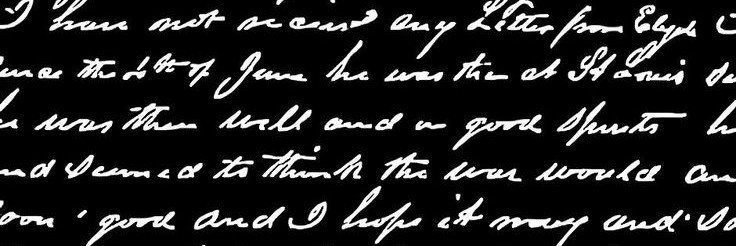 I have not received any Letter from Clyde
since the 4th of June he was then at St Louis
he was then well and in good spirits
and seemed to think the war would
soon good and I hope it may end